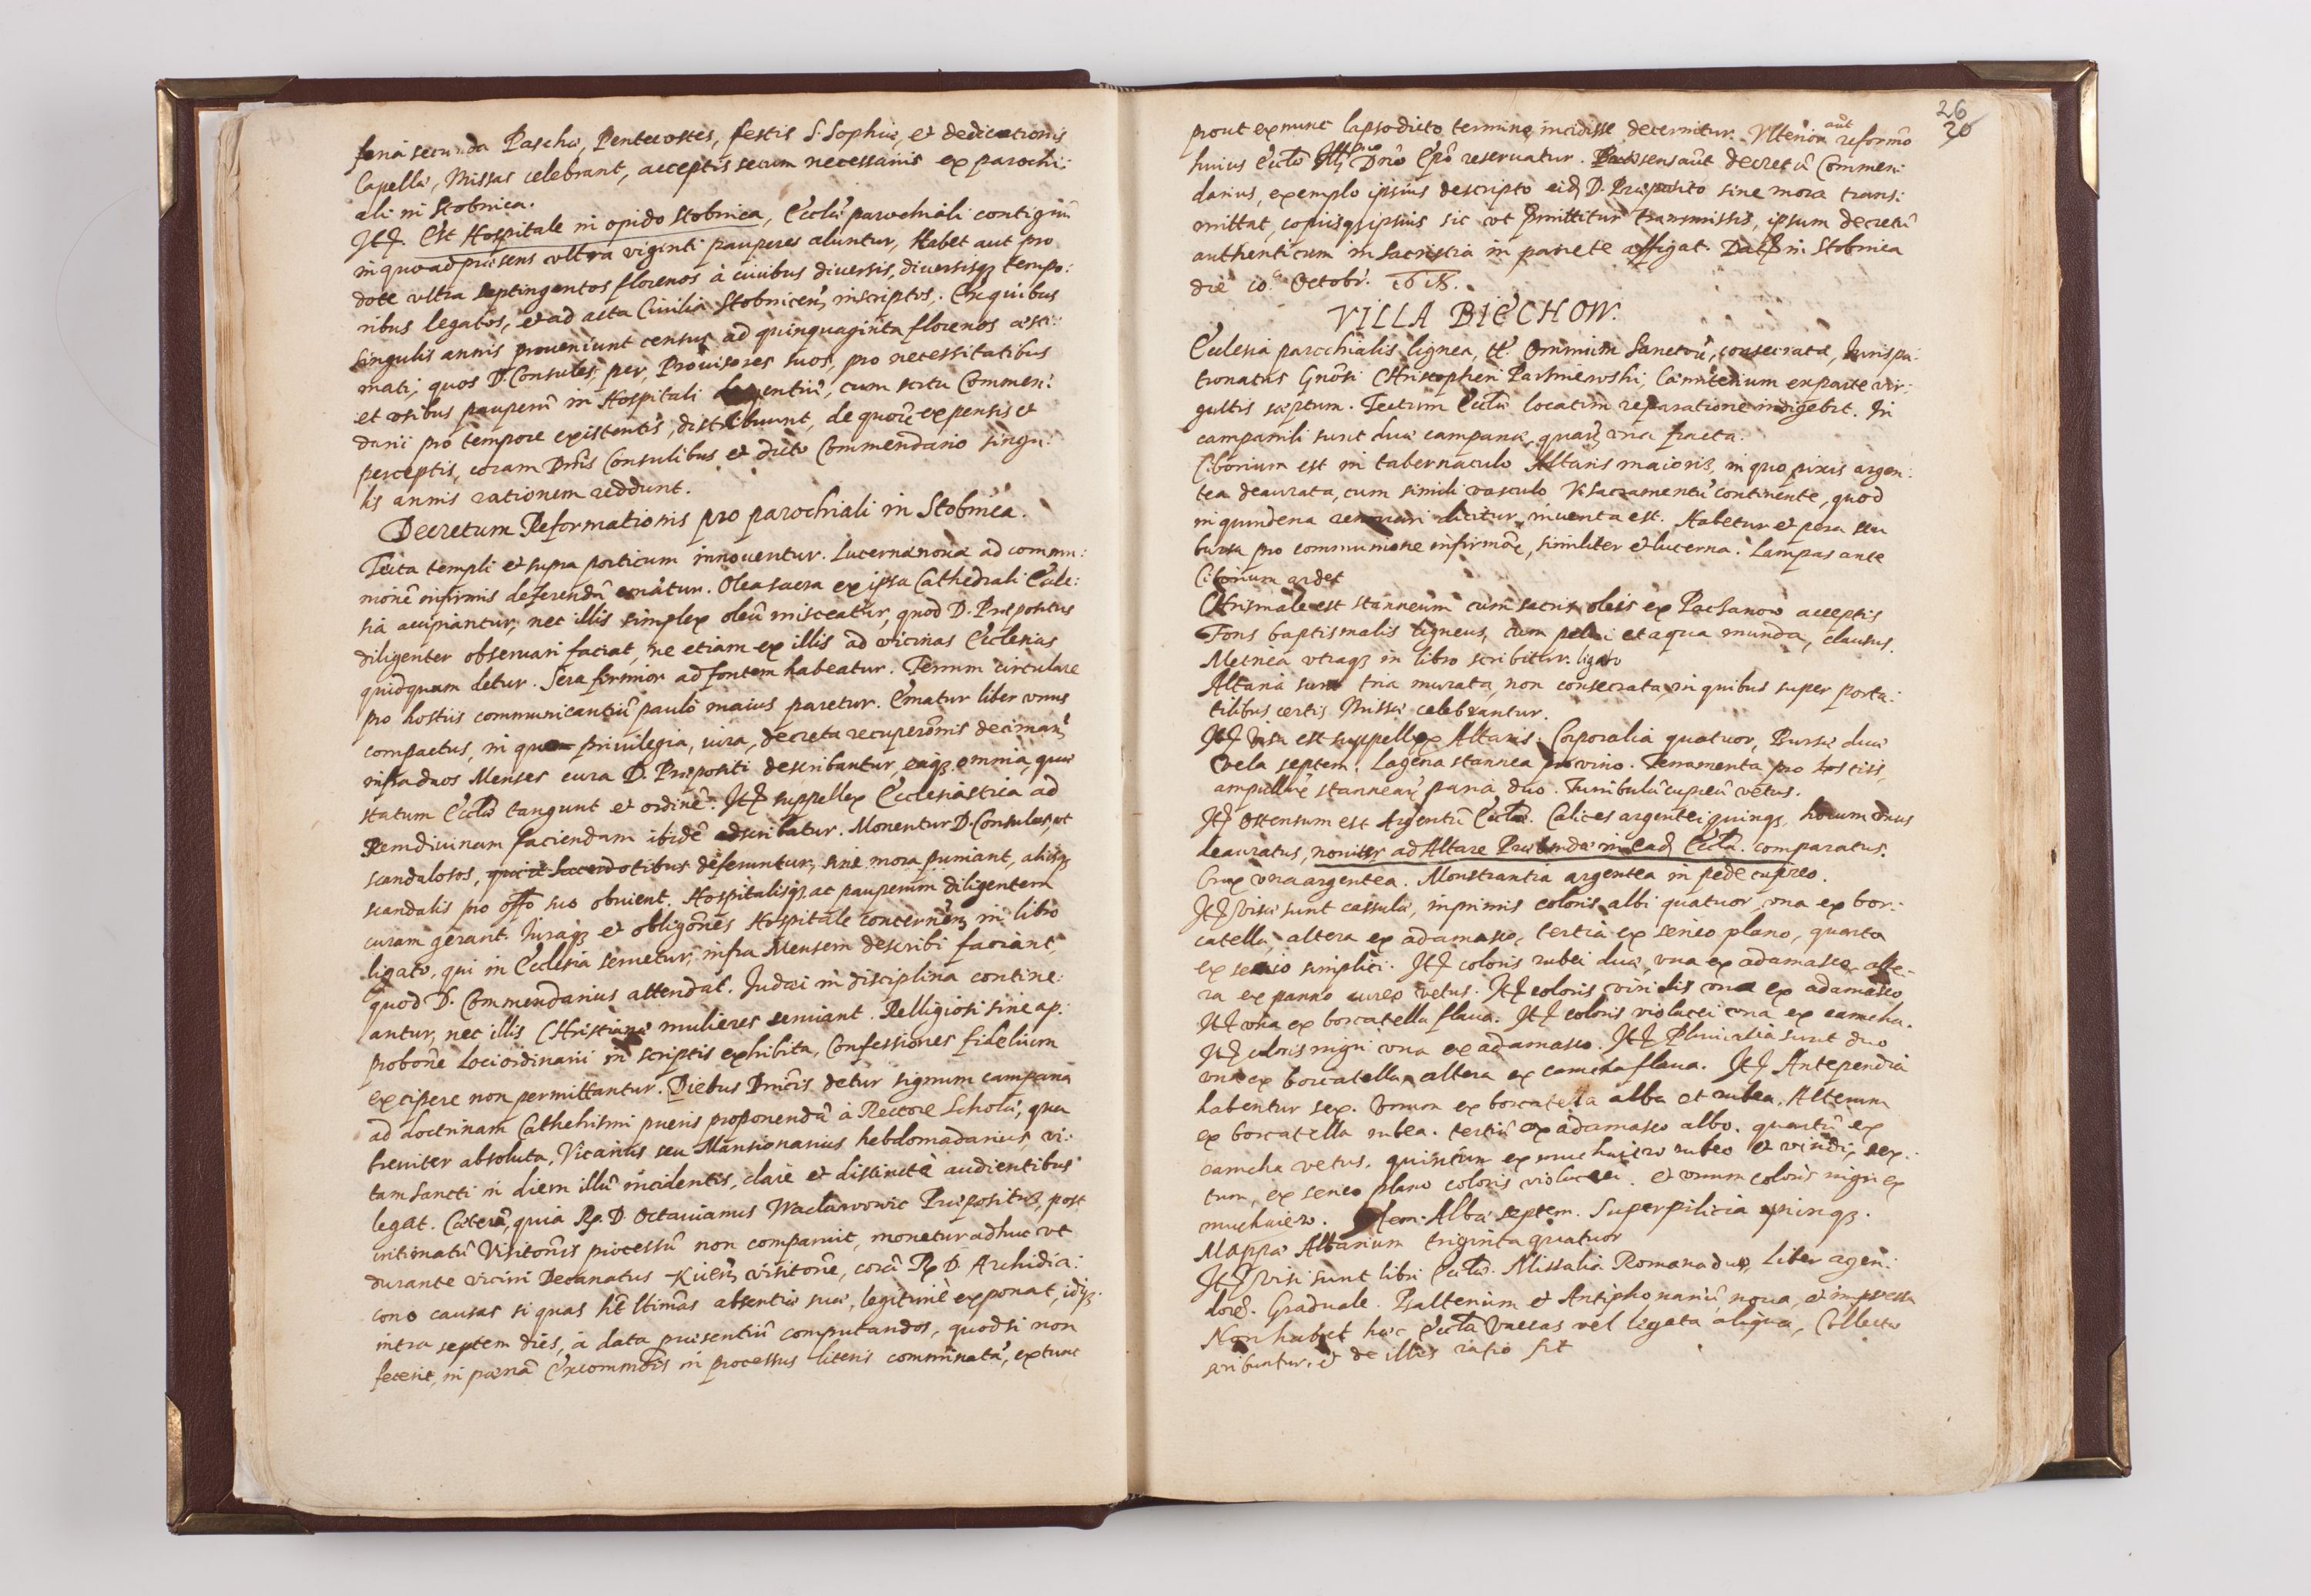 feria secunda Paschæ, Pentecostes, festis S. Sophiæ, et dedicationis
Capellæ, Missas celebrant, acceptis secum necessariis ex parochi:
ali in Stobnica.
Itẽ. Est Hospitale in opido Stobnica, Ecclæ parochiali contiguũ
in quo ad præsens vltra viginti pauperes aluntur, Habet aut pro
dote vltra septingentos florenos à ciuibus diuersis, diuersisq; tempo:
ribus legatos, et ad acta Ciuilia Stobnicen̄ inscriptos. Ex quibus
singulis annis proueniunt census ad quinquaginta florenos æsti:
mati, quos D. Consules, per Prouisores suos, pro necessitatibus
et vsibus pauperũ in Hospitali degentiũ, cum scitu Commen:
darii pro tempore existentis, distribuunt, de quorũ expensis et
perceptis, coram Dnis Consulibus et dicto Commendario singu:
lis annis rationem reddunt.
Decretum Reformationis pro parochiali in Stobnica.
Tecta templi et supra porticum innouentur. Lucerna noua ad commu:
nionẽ infirmis deferendã ematur. Olea sacra ex ipsa Cathedrali Eccle:
sia accipiantur, nec illis simplex oleũ misceatur, quod D. Præpositus
diligenter obseruari faciat, ne etiam ex illis ad vicinas Ecclesias
quidquam detur. Sera firmior ad fontem habeatur. Ferrum circulare
pro hostiis communicantiũ paulò maius paretur. Ematur liber vnus
compactus, in quem priuilegia, iura, decreta recuperõnis decimarũ
infra duos Menses cura D. Præpositi describantur, eaq; omnia, quæ
statum Ecclæ tangunt et ordinẽ. Itẽ suppellex Ecclesiastica ad
Rem diuinam faciendam ibidẽ adscribatur. Monentur D. Consules, vt
scandalosos, qui à Sacerdotibus deferuntur, sine mora puniant, aliisq;
scandalis pro offo suo obuient. Hospitalisq; ac pauperum diligentem
curam gerant. Iuraq; et obligões Hospitale concernen̄ in libro
ligato, qui in Ecclesia seruetur, infra Mensem describi faciant,
quod D. Commendarius attendat. Iudæi in disciplina contine:
antur, nec illis Christianæ mulieres seruiant. Relligiosi sine ap:
probone Loci ordinarii in scriptis exhibita, Confessiones fidelium
excipere non permittantur. Diebus Dnicis detur signum campana
ad doctrinam Cathehismi pueris proponendã à Rectore Scholæ, qua
breuiter absoluta, Vicarius seu Mansionarius hebdomadarius, vi:
tam Sancti in diem illũ incidentis, clare et distinctè audientibus
legat. Cæterũ, quia Rp. D. Octauianus Waclawowic Præpositus, post
intimatũ Visitonis processũ non comparuit, monetur adhuc vt
durante vicini Decanatus Kijen̄ visitone, corã Rp D. Archidia:
cono causas si quas ht ltimas absentiæ suæ, legitimè exponat, idq;
intra septem dies, à data præsentiũ computandos, quod si non
fecerit, in pænã Excommois in processus literis comminatã, extunc
26
20
prout ex nunc lapso dicto termino, incidisse decernitur. Vlterior aut reformo
huius Ecclæ Illmo Dno Epo reseruatur. Præsens aut decretũ Commen:
darius, exemplo ipsius descripto eid D. Præposito sine mora trans:
mittat, copiisq; ipsius sic vt præmittitur transmissis, ipsum decretũ
authenticum in Sacristia in pariete affigat. Dat in Stobnica
die 10. Octobr. 1618.
VILLA BIECHOW.
Ecclesia parochialis lignea, tt. Omnium Sanctorũ, consecrata, Iurispa:
tronatus Gnosi Christopheri Parsniewski, Cæmiterium ex parte vir:
gultis sæptum. Tectum Ecclæ locatim reparatione indigebit. In
campanili sunt duæ campanæ, quarũ vna fracta.
Ciborium est in tabernaculo Altaris maioris, in quo pixis argen:
tea deaurata, cum simili vasculo V. Sacramentũ continente, quod
in quindena renouari dicitur, inuenta est. Habetur et pera seu
bursa pro communione infirmorũ, similiter et lucerna. Lampas ante
Ciborium ardet
Chrismale est stanneum cum sacris oleis ex Pacsanow acceptis
Fons baptismalis ligneus, cum pelui et aqua munda, clausus.
Metrica vtraq; in libro scribitur ligato
Altaria sunt tria murata, non consecrata, in quibus super porta:
tilibus certis Missæ celebrantur.
Itẽ Visa est suppellex Altaris. Corporalia quatuor, Bursæ duæ
Vela septem. Lagena stannea pro vino. Ferramenta pro hostiis,
ampullarũ stannearũ paria duo. Turibulũ cupreũ vetus.
Itẽ Ostensum est Argentũ Ecclæ. Calices argentei quinq; horum vnus
deauratus, nouiter ad Altare Præbendæ in ead Eccla. comparatus.
Crux vna argentea. Monstrantia argentea in pede cupreo.
Itẽ Visæ sunt casulæ, inprimis coloris albi quatuor, vna ex bor:
catella, altera ex adamasco, tertia ex sericeo plano, quarta
ex sericeo simplici. Itẽ coloris rubei duæ, vna ex adamasco, alte-
ra ex panno aureo vetus. Itẽ coloris viridis vna ex adamasco,
Itẽ vna ex borcatella flaua. Itẽ coloris violacei vna ex camcha.
Itẽ coloris nigri vna ex adamasco. Itẽ Pluuialia sunt duo
vna ex borcatella, altera ex camcha flaua. Itẽ Antependia
habentur sex. Vnum ex borcatella alba et rubea. Alterum
ex borcatella rubea. tertiũ ex adamasco albo. quartũ ex
camcha vetus. quintum ex muchaiero rubeo et viridi, sex:
tum, ex sericeo plano coloris violacei. et vnum coloris nigri ex
muchaiero. Item Albæ septem. Superpilicia quinq;.
Mappæ Altarium triginta quatuor
Itẽ Visi sunt libri Ecclæ. Missalia Romana duo, Liber agen:
dorũ. Graduale. Psalterium et Antiphonariũ, noua, et impressa
Non habet hæc Eccla Vaccas vel legata aliqua, Collectæ
scribuntur, et de illis ratio fit